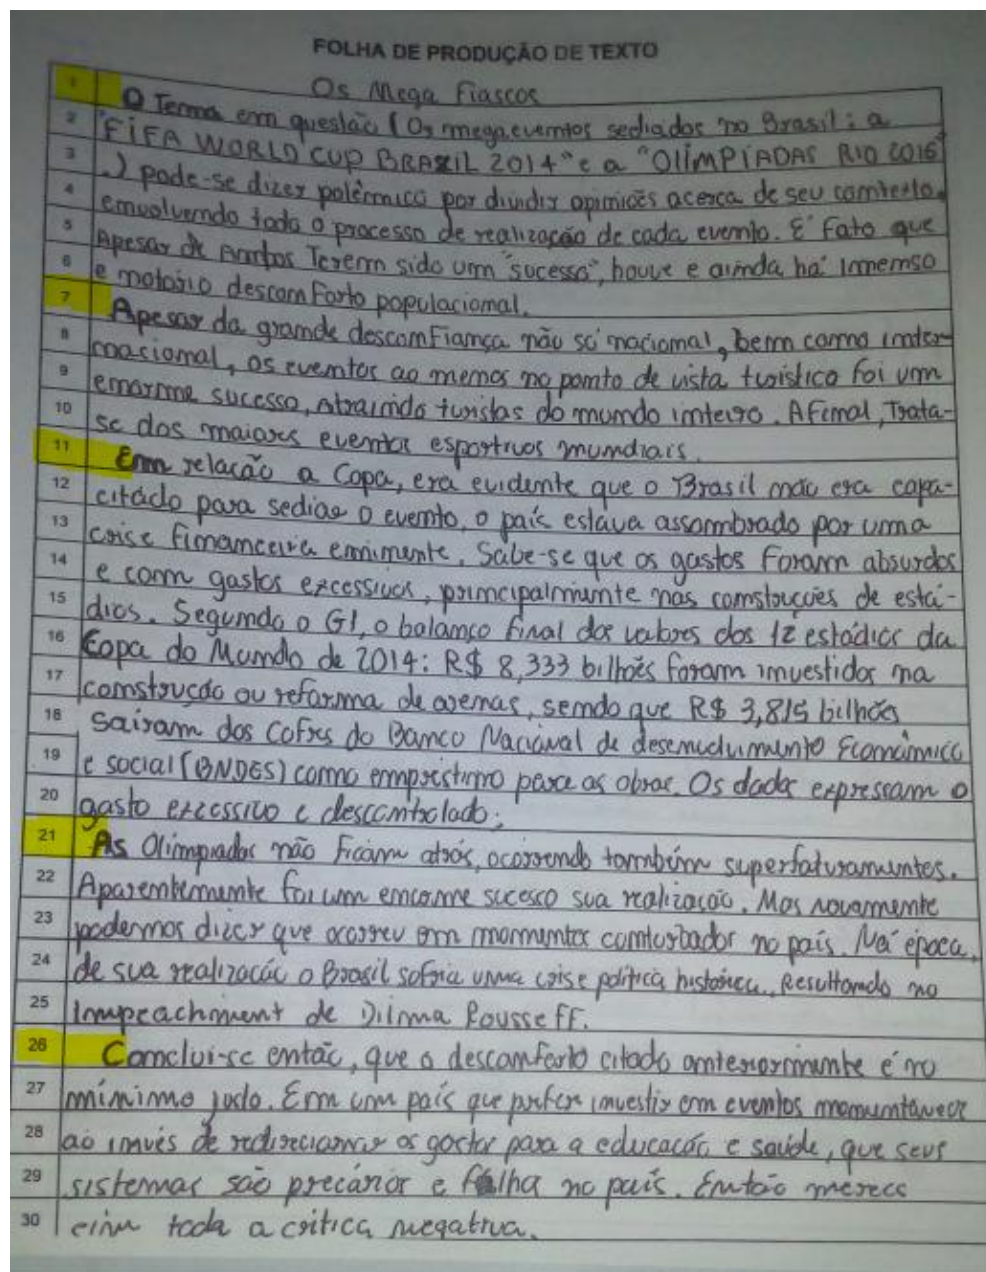 FOLHA DE PRODUÇÃO DE TEXTO
1 Os Mega Fiascos
2 O Tema em questão (Os megaeventos sediados no Brasil: a
3 "FIFA WORLD CUP BRAZIL 2014" e a "OLIMPÍADAS RIO 2016"
4 .) pode-se dizer polêmico por dividir opiniões acerca de seu contexto,
5 envolvendo todo o processo de realização de cada evento. É fato que
6 Apesar de Ambos Terem sido um "sucesso", houve e ainda há imenso
7 e notório desconforto populacional.
8 Apesar da grande desconfiança não só nacional, bem como inter-
9 nacional, os eventos ao menos no ponto de vista turístico foi um
10 enorme sucesso, atraindo turistas do mundo inteiro. Afinal, Trata-
11 se dos maiores eventos esportivos mundiais.
12 Em relação a Copa, era evidente que o Brasil não era capa-
13 citado para sediar o evento, o país estava assombrado por uma
14 crise financeira eminente. Sabe-se que os gastos foram absurdos
15 e com gastos excessivos, principalmente nas construções de está-
16 dios. Segundo o G1, o balanço final dos valores dos 12 estádios da
17 Copa do Mundo de 2014: R$ 8,333 bilhões foram investidos na
18 construção ou reforma de arenas, sendo que R$ 3,815 bilhões
19 Saíram dos Cofres do Banco Nacional de desenvolvimento Econômico
20 e social (BNDES) como empréstimo para as obras. Os dados expressam o
21 gasto excessivo e descontrolado;
22 As Olimpíadas não ficam atrás, ocorrendo também superfaturamentos.
23 Aparentemente foi um enorme sucesso sua realização. Mas novamente
24 podemos dizer que ocorreu em momentos conturbados no país. Na época,
25 de sua realização o Brasil sofria uma crise política histórica, Resultando no
Impeachment de Dilma Rousseff.
26 Conclui-se então, que o desconforto citado anteriormente é no
27 mínimo justo. Em um país que prefere investir em eventos momentâneos
28 ao invés de redirecionar os gastos para a educação e saúde, que seus
29 sistemas são precários e falha no país. Então merece
30 sim toda a crítica negativa.